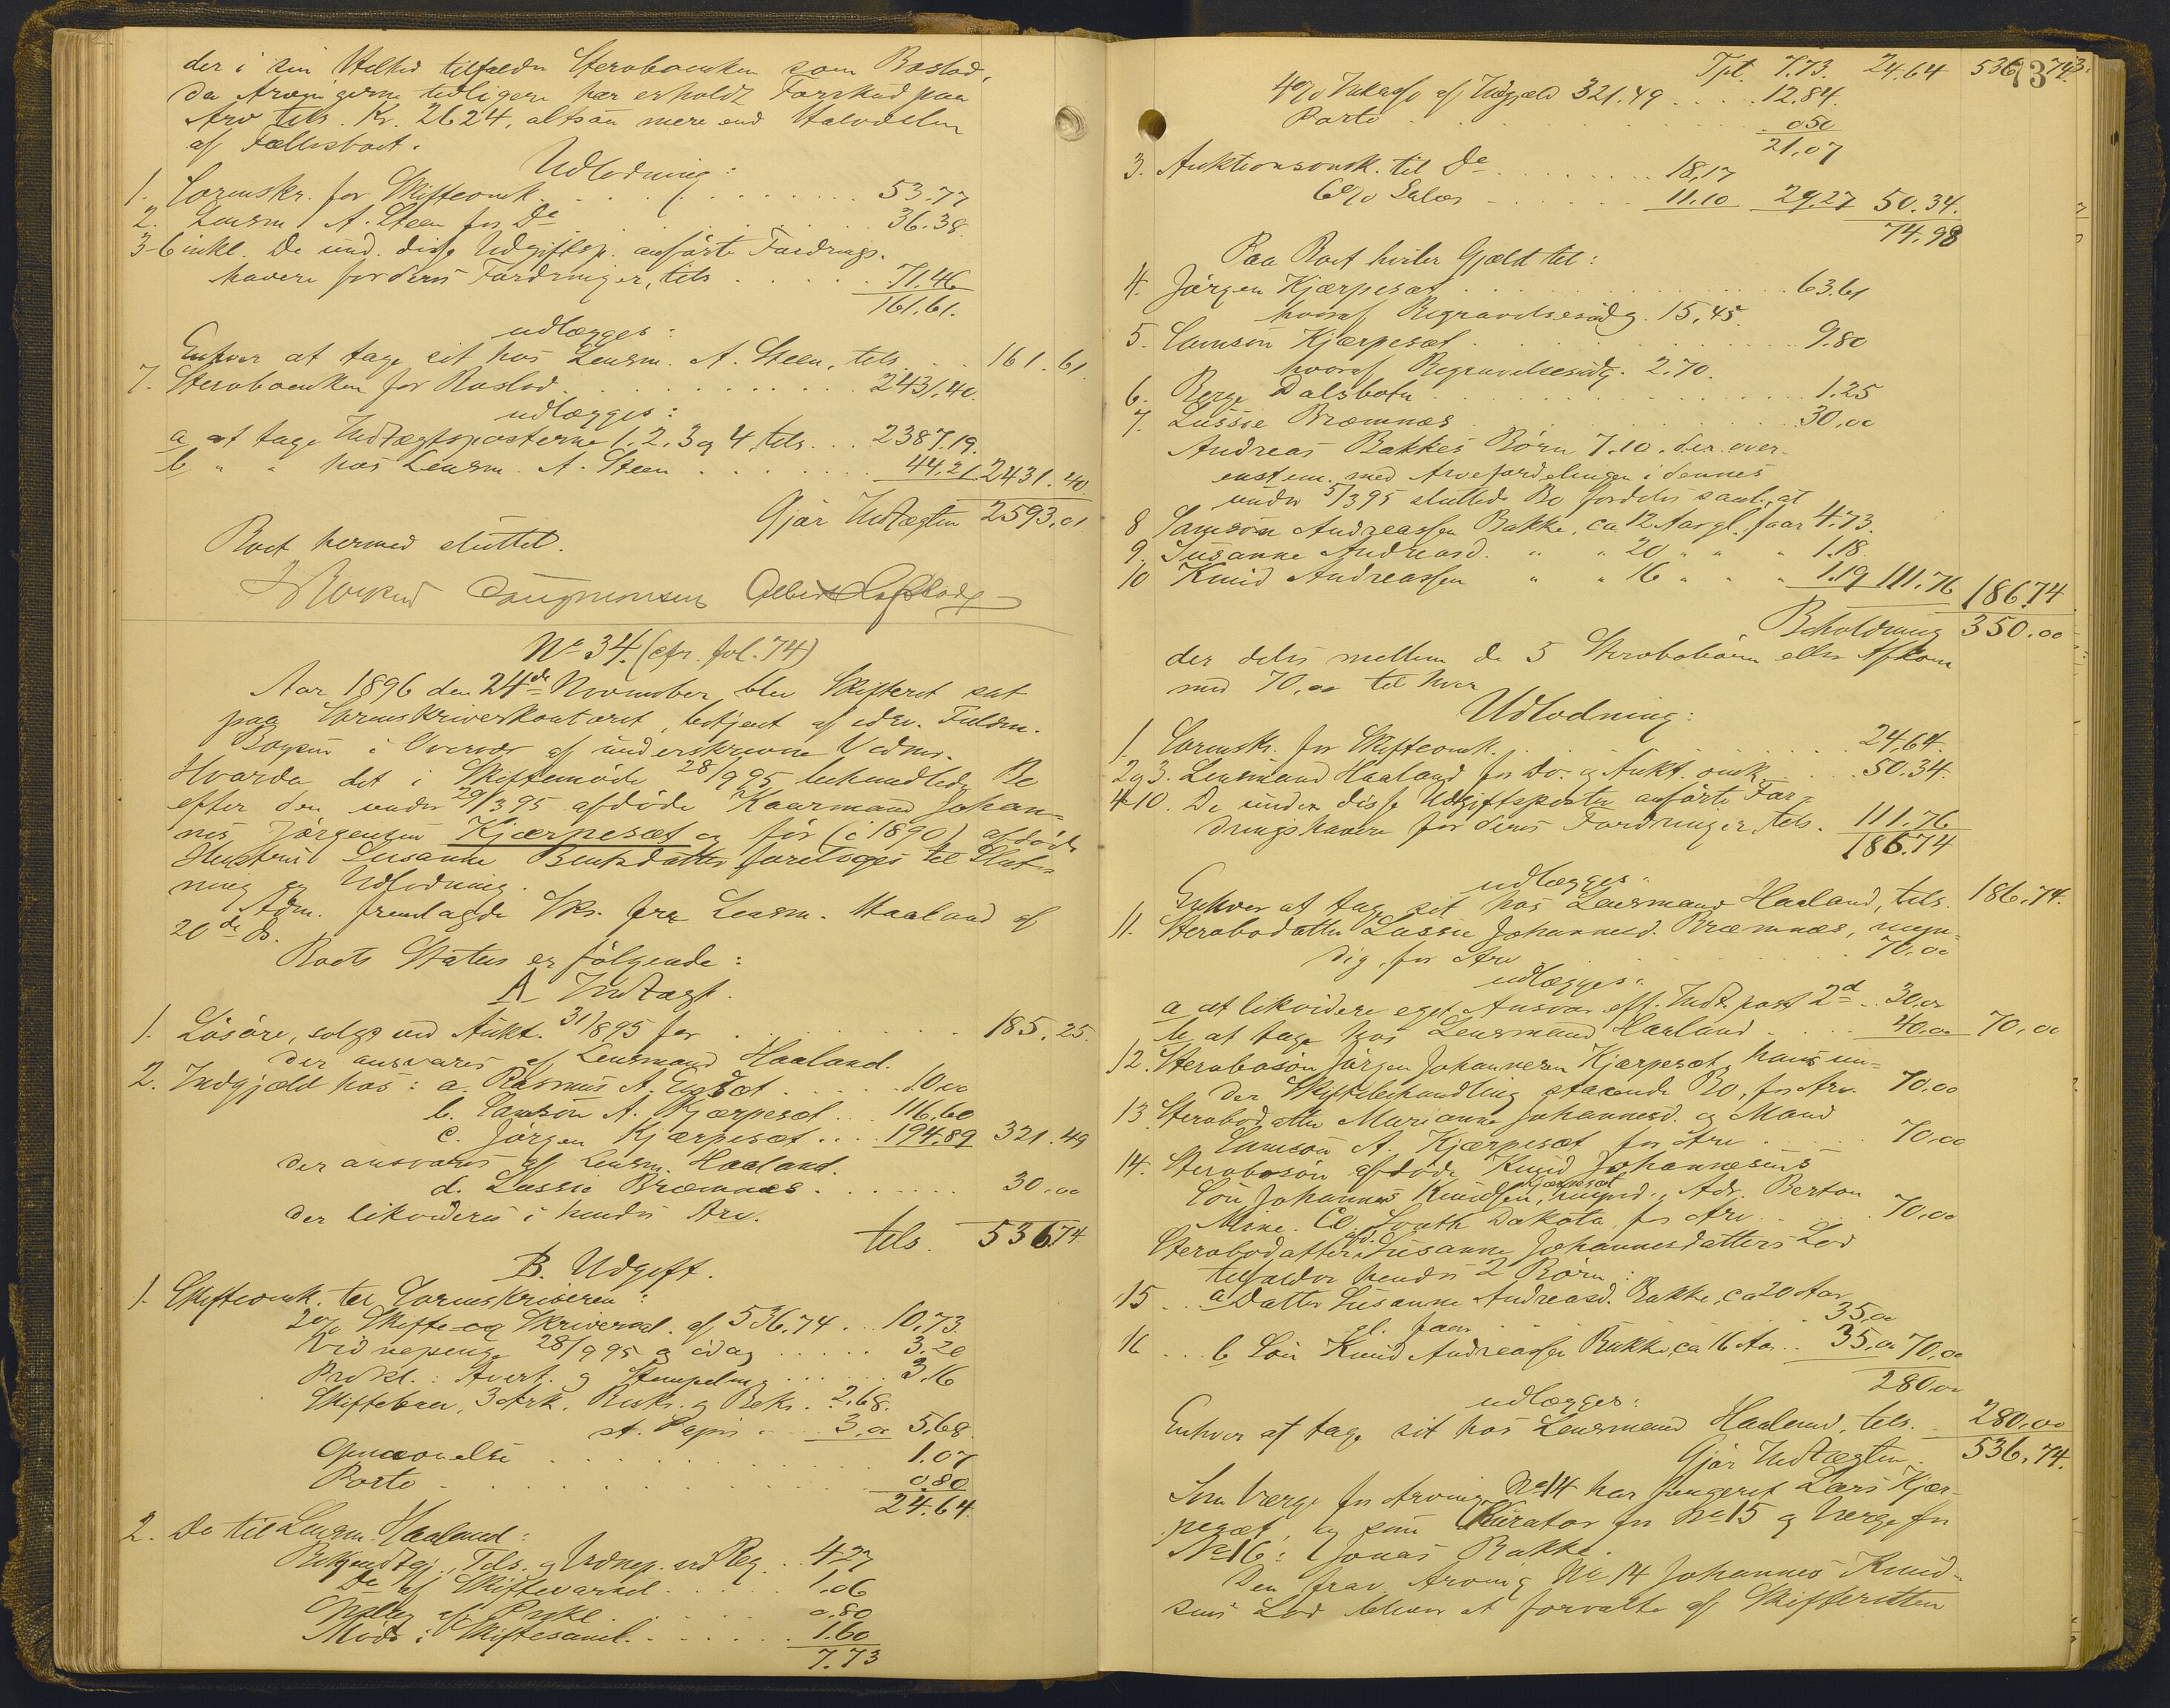 der i sin Helhed tilfalder Sterboenken som Boslod,
da Arvingerne tidligere har erholdt Forskud paa
Arv tils. Kr. 2624, altsaa mere end Halvdelen
af Fællesboet.
Udlodning:
1. Sorenskr. for Skifteomk. 53.77
2. Lensm. A. Steen for Do 36.38
3-6 inkl. De und. disse Udgiftsp. anförte Fordrings-
havere for deres Fordringer, tils 71.46
161.61.
udlægges:
Enhver at tage sit hos Lensm. A. Steen, tils. 161.61
7. Sterboenken for Boslod 2431.40.
udlægges:
a at tage Indtægtsposterne 1. 2. 3 og 4, tils. 2387.19.
b " " hos Lensm. A. Steen 44.21 2431.40
Gjör Indtægten 2593.01
Boet hermed sluttet.
No 34. (cfr. fol. 74)
Aar 1896 den 24de November blev Skifteret sat
paa Sorenskriverkontoret, betjent af edsv. Fuldm.
i Overvær af underskrevne Vidner.
Hvorda det i Skiftemöde 28/9 95 behandlede Bo
efter den under 29/3 95 afdöde Kaarmand Johan-
nes Jörgensen Kjærpesæt og för (i 1890) afdöde
Hustru Susanne Bentsdatter foretoges til Slut-
ning og Udlodning.
Adm. fremlagde Skr. fra Lensm. Haaland af
20de ds.
Boets Status er fölgende:
A Indtægt.
1. Lösöre, solgt ved Aukt. 31/8 95 for 185.25.
der ansvares af Lensmand Haaland.
2. Indgjæld hos: a. Rasmus A. 10.00
b. Samson A. Kjærpesæt 116.60
c. Jörgen Kjærpesæt 194.89 321.49
der ansvares af Lensm. Haaland.
d. Lussie Bræmnæs 30.00
der likvideres i hendes Arv.
tils. 536.74
B. Udgift.
1. Skifteomk. til Sorenskriveren:
2% Skifte- og Skriversal. af 536.74 10.73
Vidnepenge 28/9 95 og idag 3.20
Prokl.: Avert. og Stempeling 3.16
Skiftebrev, 3 Ark, Besk. og Bekr. 2.68.
st. Papir 3.00 5.68
1.07
Porto 0.80
24.64.
2. Do til Lensm. Haaland:
Bekjendtgj., Tils. og Vidnep. ved Reg. 4.27
Do af Skiftevarsel 1.06
Oplæg af Prokl. 0.80
Möde i Skiftesaml. 1.60
7.73
73
Tpt. 7.73. 24.64 536.74
4% Inkasso af Indgjæld 321.49 12.84.
Porto 0.50
21.07
3. Auktionsomk. til Do 18.17
6% Salær 11.10 29.27 50.34.
74.98
Paa Boet hviler Gjæld til:
4. Jörgen Kjærpesæt 63.61
hvoraf Begravelsesudg. 15.45.
5. Samson Kjærpesæt 9.80
hvoraf Begravelsesudg. 2.70.
6. Berge Dalsbotn 1.25
7. Lussie Bræmnæs 30.00
Andreas Bakkes Börn 7.10, der over-
enstem. med Arvefordelingen i dennes
under 5/3 95 sluttede Bo fordeles saal. at
8 Samson Andreassen Bakke, ca. 12 Aar gl. faar 4.73.
9. Susanne Andreasd. " " 20 " " " 1.18.
10 Knud Andreassen " " 16 " " " 1.19 111.76 186.74
Beholdning 350.00
der deles mellem de 5 Sterbobörn eller Afkom
med 70.00 til hver
Udlodning:
1. Sorenskr. for Skifteomk. 24.64.
2 og 3. Lensmand Haaland for Do. og Aukt. omk. 50.34.
4-10. De under disse Udgiftsposter anförte For-
dringshavere for deres Fordringer, tils. 111.76
186.74
udlægges:
Enhver at tage sit hos Lensmand Haaland, tils. 186.74.
11. Sterbodatter Lussie Johannesd. Bræmnæs, myn-
dig, for Arv 70.00
udlægges:
a at likvidere eget Ansvar eft. Indt. post 2d 30.00
b at tage hos Lensmand Haaland 40.00 70.00
12. Sterbosön Jörgen Johannesen Kjærpesæt, hans un-
der Skiftebehandling staaende Bo, for Arv. 70.00
13. Sterbodatter Marianne Johannesd. og Mand
Samson A. Kjærpesæt for Arv 70.00
14. Sterbosön afdöde Knud Johannesens
Sön Johannes Knudsen Kjærpesæt, mynd., Adr. Berton
Mine. Co. South Dakota, for Arv 70.00
Sterbodatter afd. Susanne Johannesdatters Lod
tilfalder hendes 2 Börn:
15 a Datter Susanne Andreasd. Bakke, ca 20 Aar
gl. faar 35.00
16 b Sön Knud Andreassen Bakke, ca 16 Aar 35.00 70.00
280.00
udlægges:
Enhver at tage sit hos Lensmand Haaland, tils. 280.00
Gjör Indtægten 536.74.
Som Værge for Arving No 14 har fungeret Lars Kjær-
pesæt, og som Kurator for No 15 og Værge for
No 16: Jonas Bakke.
Den frav. Arving No 14 Johannes Knud-
sens Lod bliver at forvalte af Skifteretten